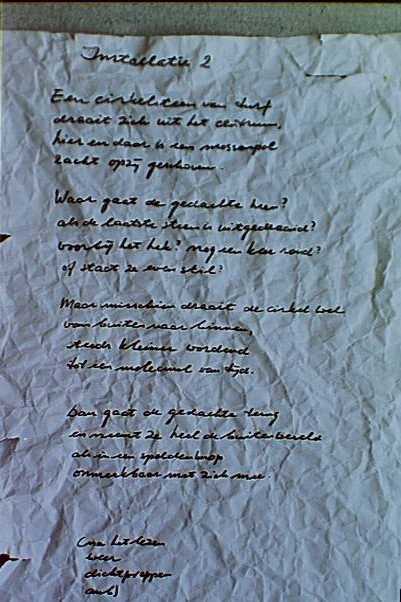 Installatie 2
Een cirkelsteen van turf
draait zich uit het centrum,
hier en daar is een mossenpol
zacht opzij geschoven.
Waar gaat de gedachte heen?
als de laatste steen is uitgedraaid?
voorbij het hek? nog een keer rond?
of staat ze even stil?
Maar misschien draait de cirkel wel
van buiten naar binnen,
steeds kleiner wordend
tot een molecuul van tijd.
Dan gaat de gedachte terug
en neemt ze heel de buitenwereld
als in een speldenknop
onmerkbaar met zich mee.
(na het lezen
weer
dichtproppen
aub)